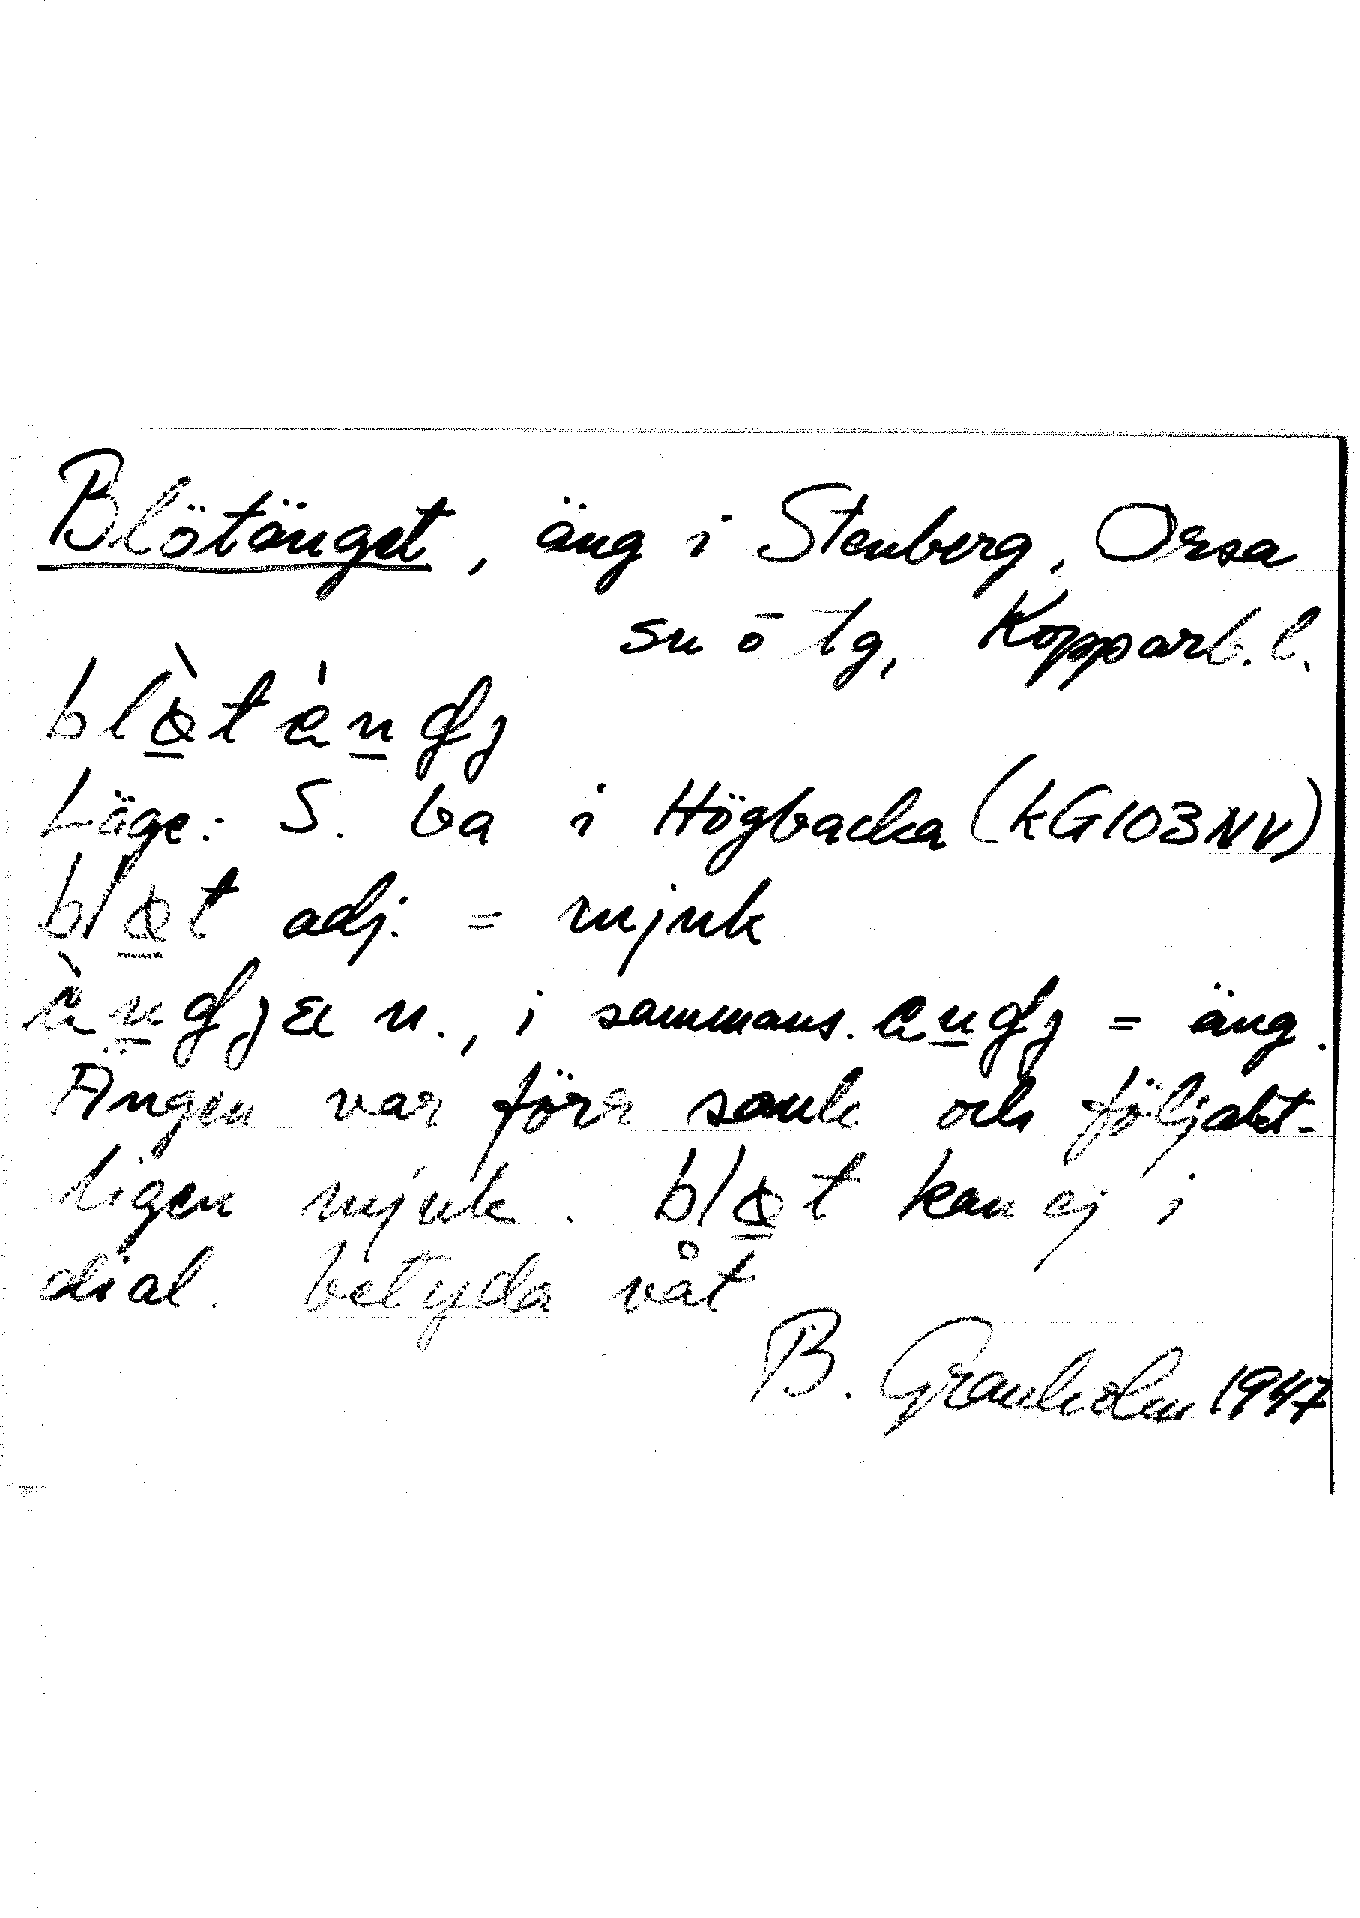 Blötänget, äng i Stenberg, Orsa
sn o tg, Kopparb. l.
Läge: S. ba i Högbacka (kG103NV)
adj. = mjuk
n., i sammans. = äng.
Ängen var förr sank och följakt-
ligen mjuk. kan ej i
dial. betyda våt
B. Granholm 1947